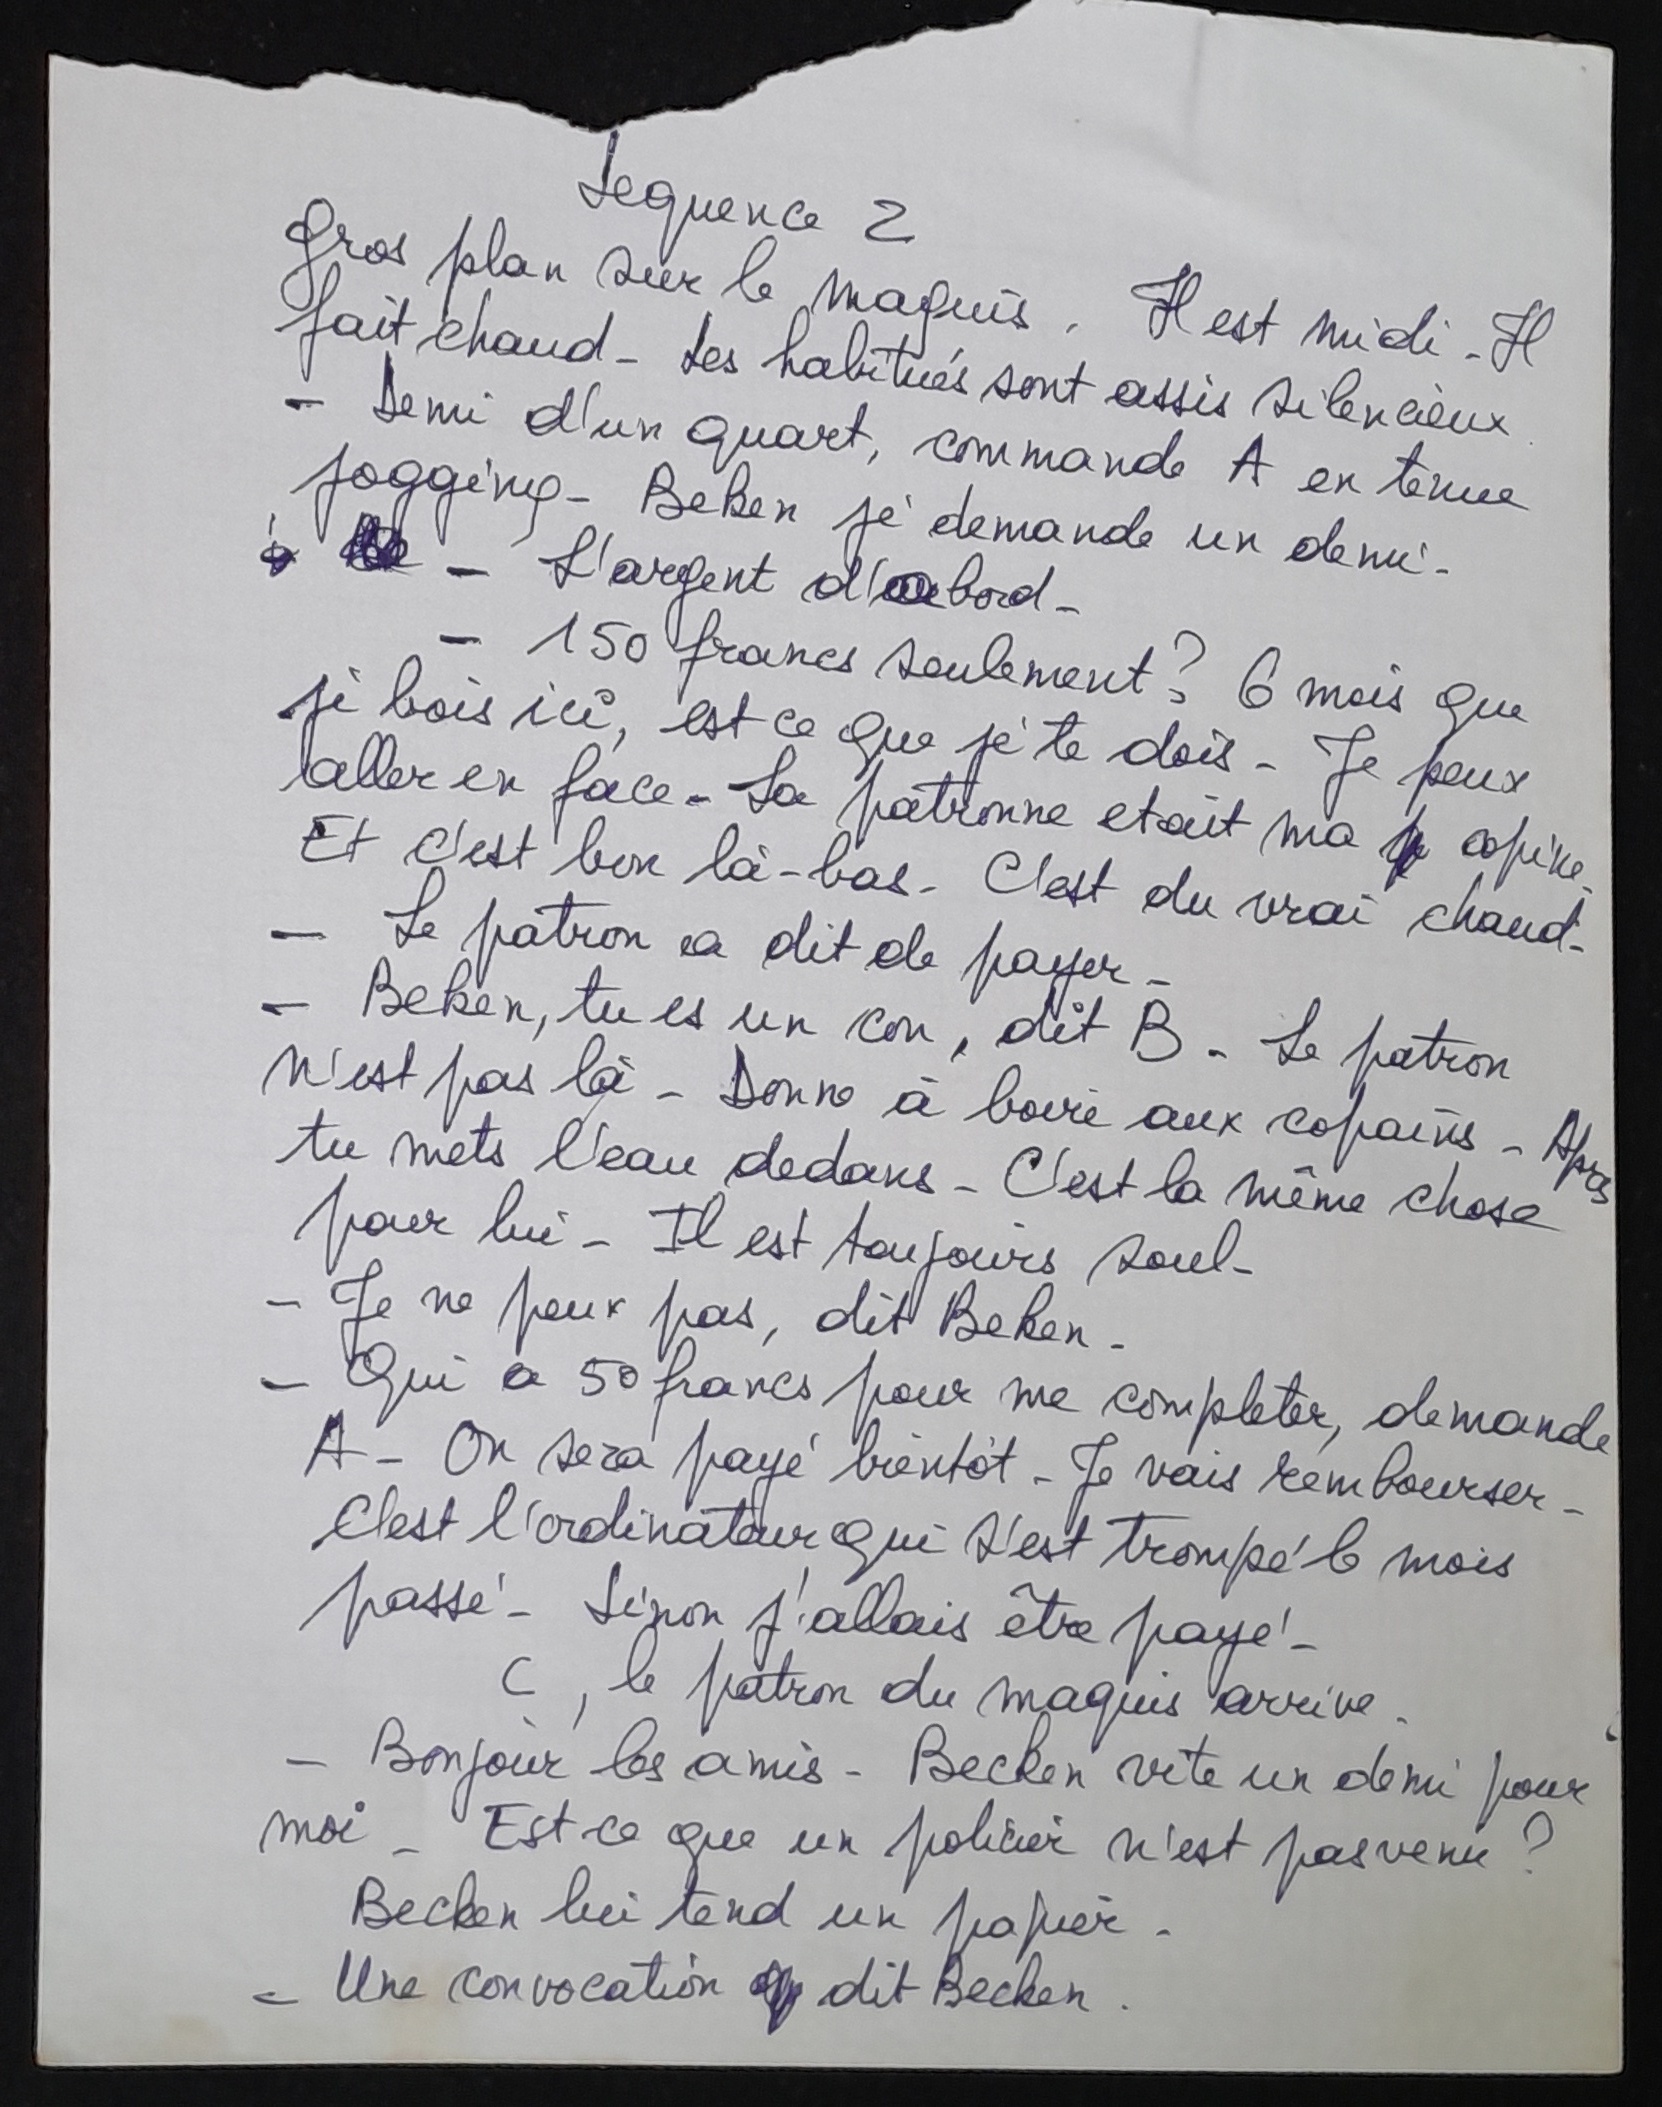 Sequence 2
Gros plan sur le maquis. Il est midi - Il
fait chaud - Les habitués sont assis silencieux.
- Demi d'un quart, commande A en tenue
jogging - Beken je demande un demi -
- L'argent d'abord -
- 150 francs seulement ? 6 mois que
je bois ici, est ce que je te dois - Je peux
aller en face - La patronne etait ma copine.
Et c'est bon là-bas - C'est du vrai chaud -
- Le patron a dit de payer -
- Beken, tu es un con, dit B - Le patron
n'est pas là - Donne à boire aux copains - Après
tu mets l'eau dedans - C'est la même chose
pour lui - Il est toujours soul -
- Je ne peux pas, dit Beken -
- Qui a 50 francs pour me completer, demande
A - On sera payé bientôt - Je vais rembourser -
C'est l'ordinateur qui s'est trompé le mois
passé - Sinon j'allais être payé -
C, le patron du maquis arrive.
- Bonjour les amis - Becken vite un demi pour
moi - Est-ce que un policier n'est pas venu ?
Becken lui tend un papier -
- Une convocation dit Becken.